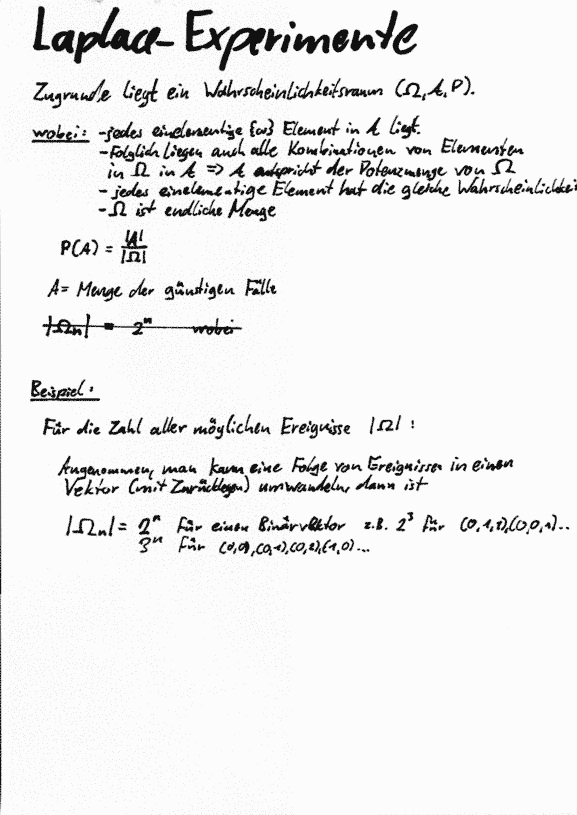 Laplace-Experimente
Zugrunde liegt ein Wahrscheinlichkeitsraum (Ω, A, P).
wobei: - jedes einelementige {ω} Element in A liegt.
- Folglich liegen auch alle Kombinationen von Elementen
in Ω in A => A entspricht der Potenzmenge von Ω
- jedes einelementige Element hat die gleiche Wahrscheinlichkei
- Ω ist endliche Menge
P(A) = |A| / |Ω|
A = Menge der günstigen Fälle
|Ωn| = 2^n wobei
Beispiel:
Für die Zahl aller möglichen Ereignisse |Ω| :
Angenommen, man kann eine Folge von Ereignissen in einen
Vektor (mit Zurücklegen) umwandeln, dann ist
|Ωn| = 2^n für einen Binärvektor z.B. 2^3 für (0,1,1),(0,0,1)..
3^n für (0,0),(0,1),(0,2),(1,0)...